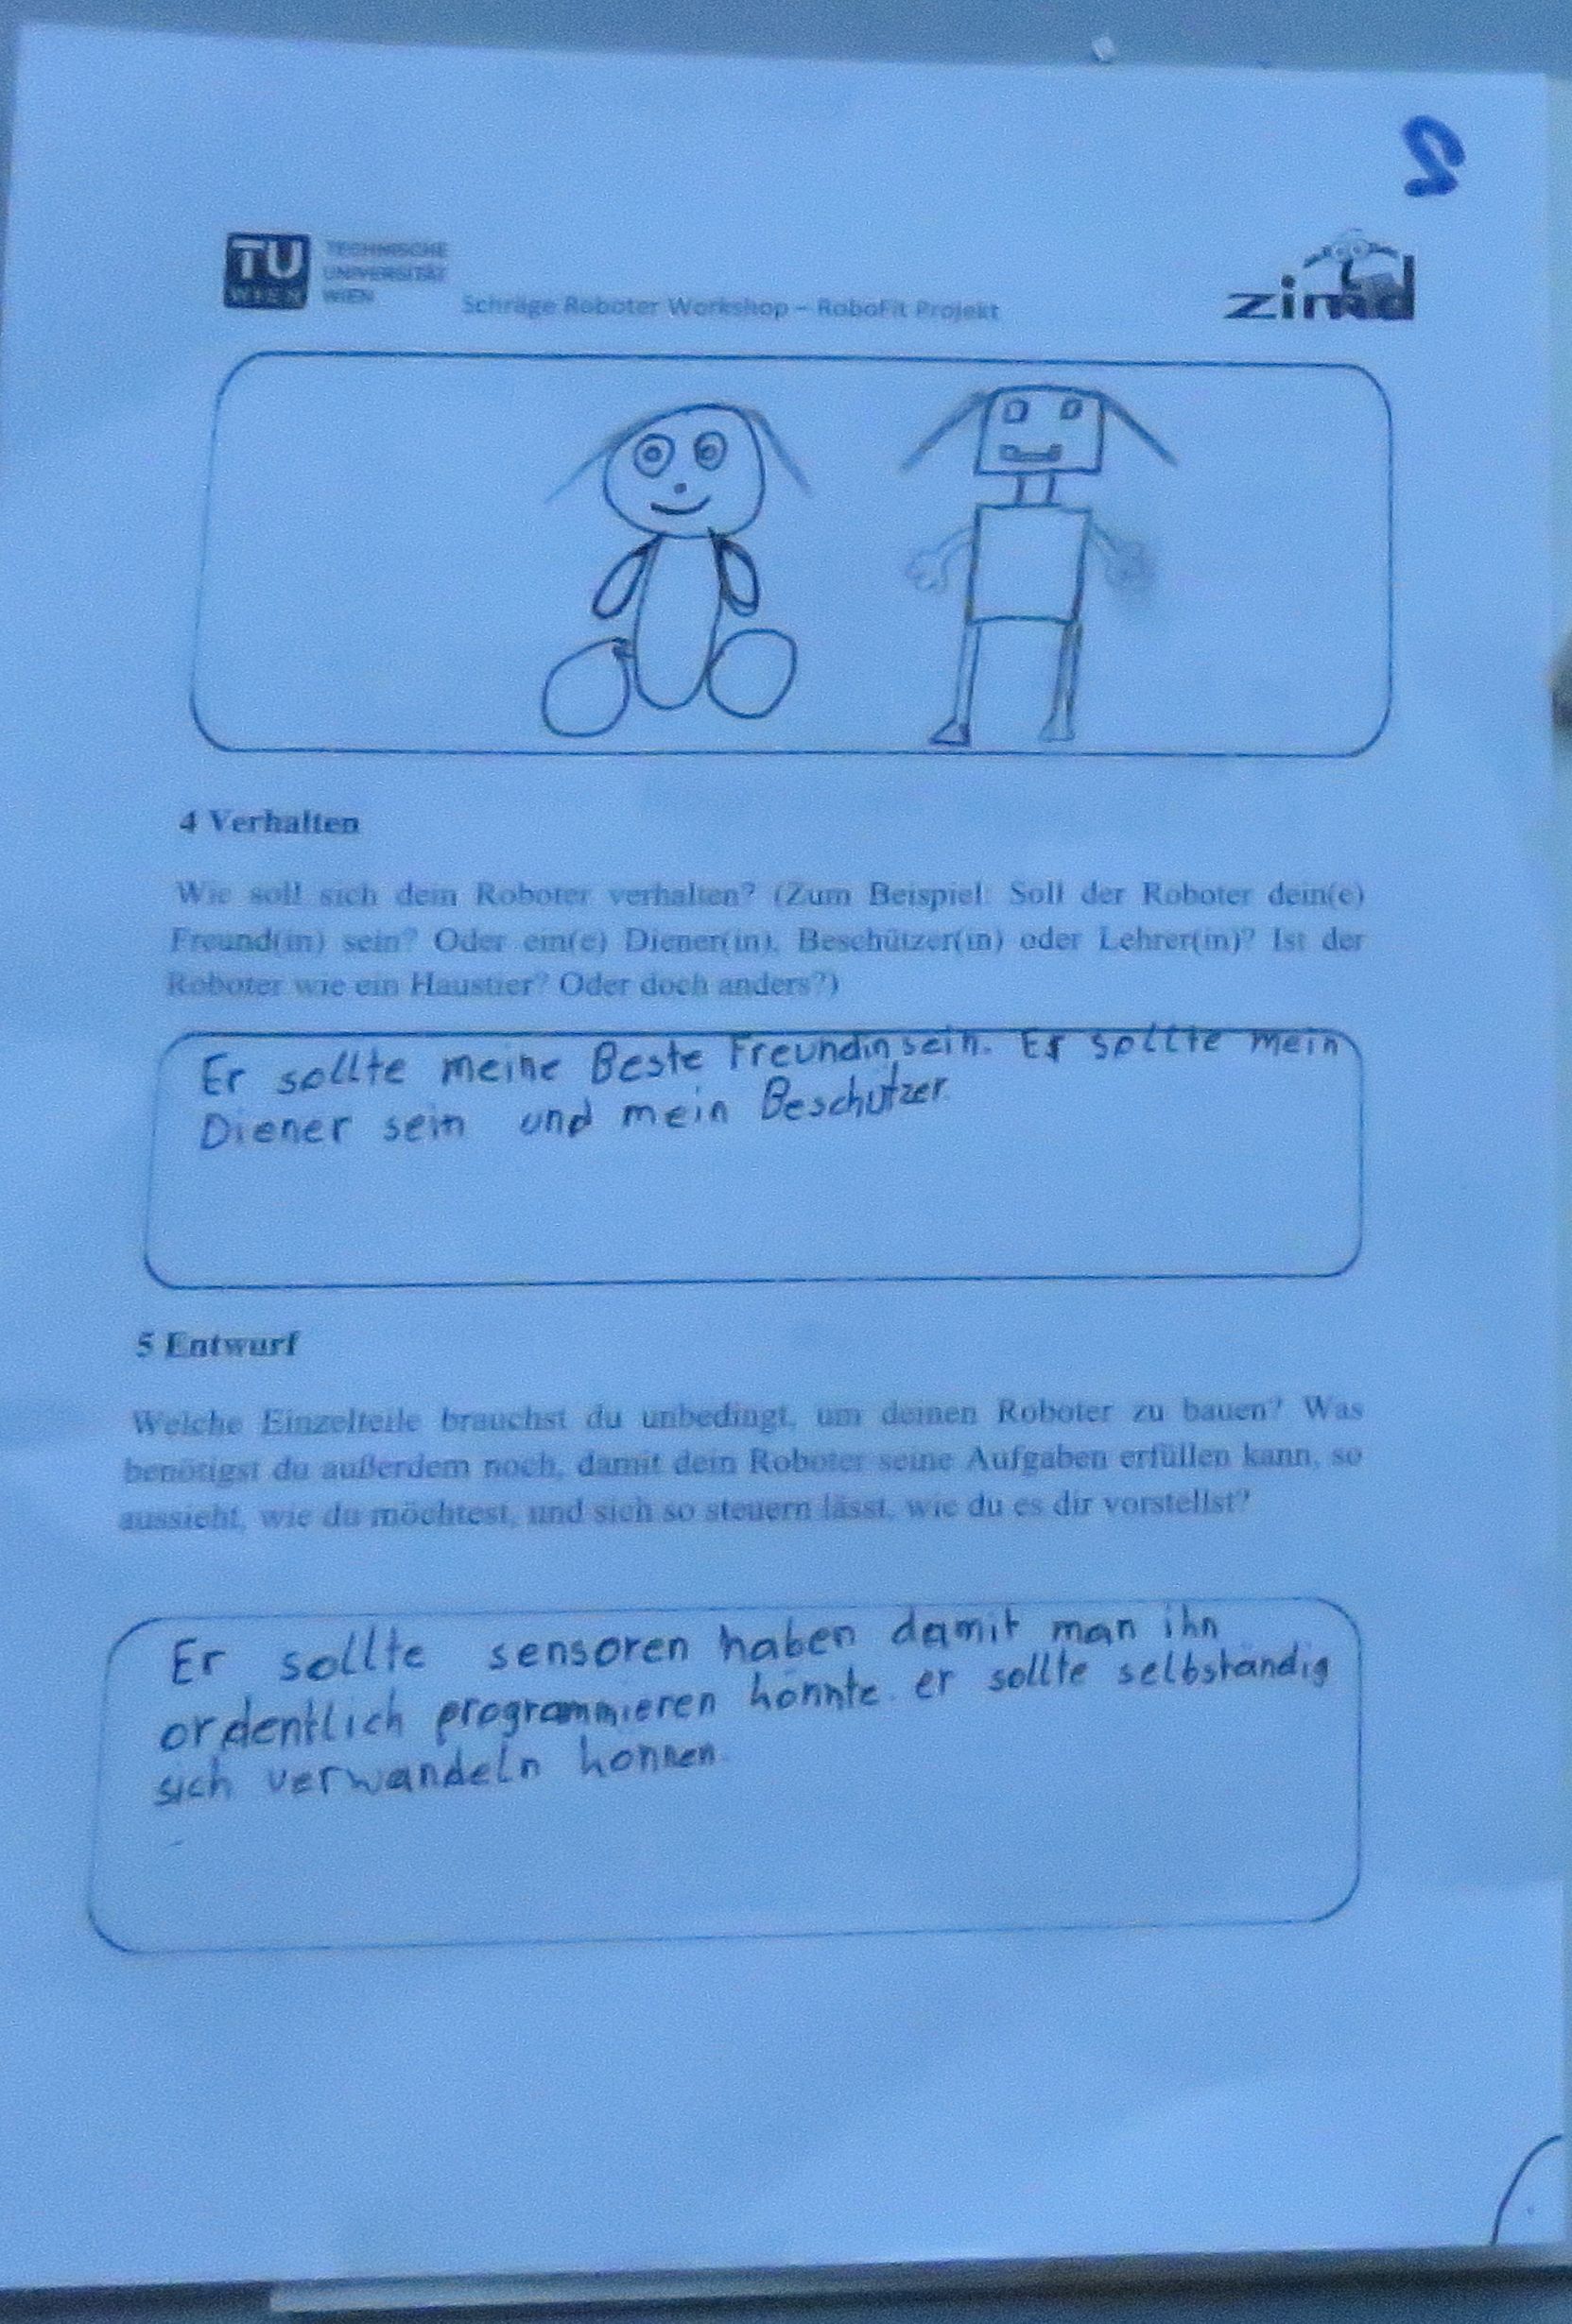 2
TU
WIEN
TECHNISCHE
UNIVERSITÄT
WIEN
Schräge Roboter Workshop – RoboFit Projekt
zimd
4 Verhalten
Wie soll sich dein Roboter verhalten? (Zum Beispiel: Soll der Roboter dein(e)
Freund(in) sein? Oder ein(e) Diener(in), Beschützer(in) oder Lehrer(in)? Ist der
Roboter wie ein Haustier? Oder doch anders?)
Er sollte meine Beste Freundin sein. Er sollte mein
Diener sein und mein Beschützer.
5 Entwurf
Welche Einzelteile brauchst du unbedingt, um deinen Roboter zu bauen? Was
benötigst du außerdem noch, damit dein Roboter seine Aufgaben erfüllen kann, so
aussieht, wie du möchtest, und sich so steuern lässt, wie du es dir vorstellst?
Er sollte sensoren haben damit man ihn
ordentlich programmieren könnte. er sollte selbständig
sich verwandeln können.